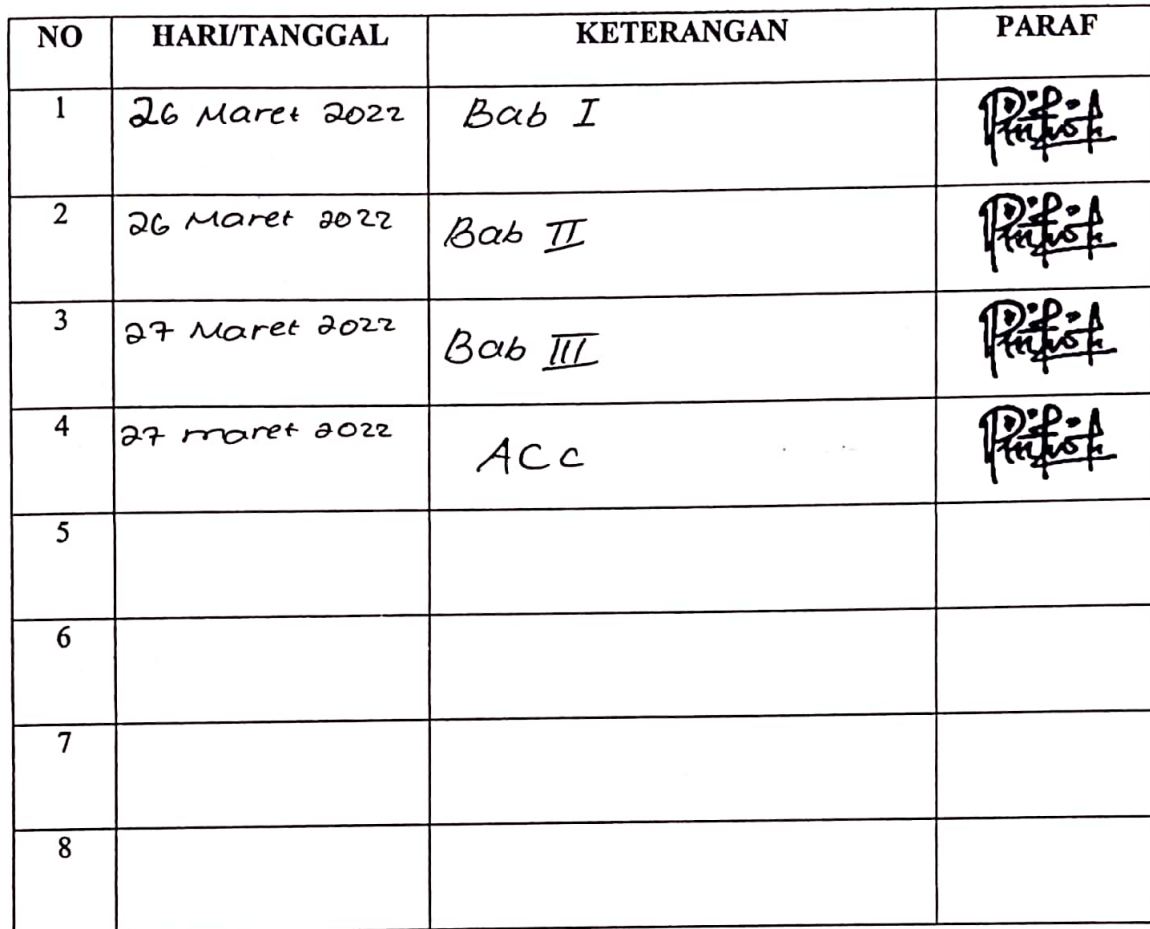 NO HARI/TANGGAL KETERANGAN PARAF
1 26 Maret 2022 Bab I
2 26 Maret 2022 Bab II
3 27 Maret 2022 Bab III
4 27 maret 2022 ACC
5
6
7
8